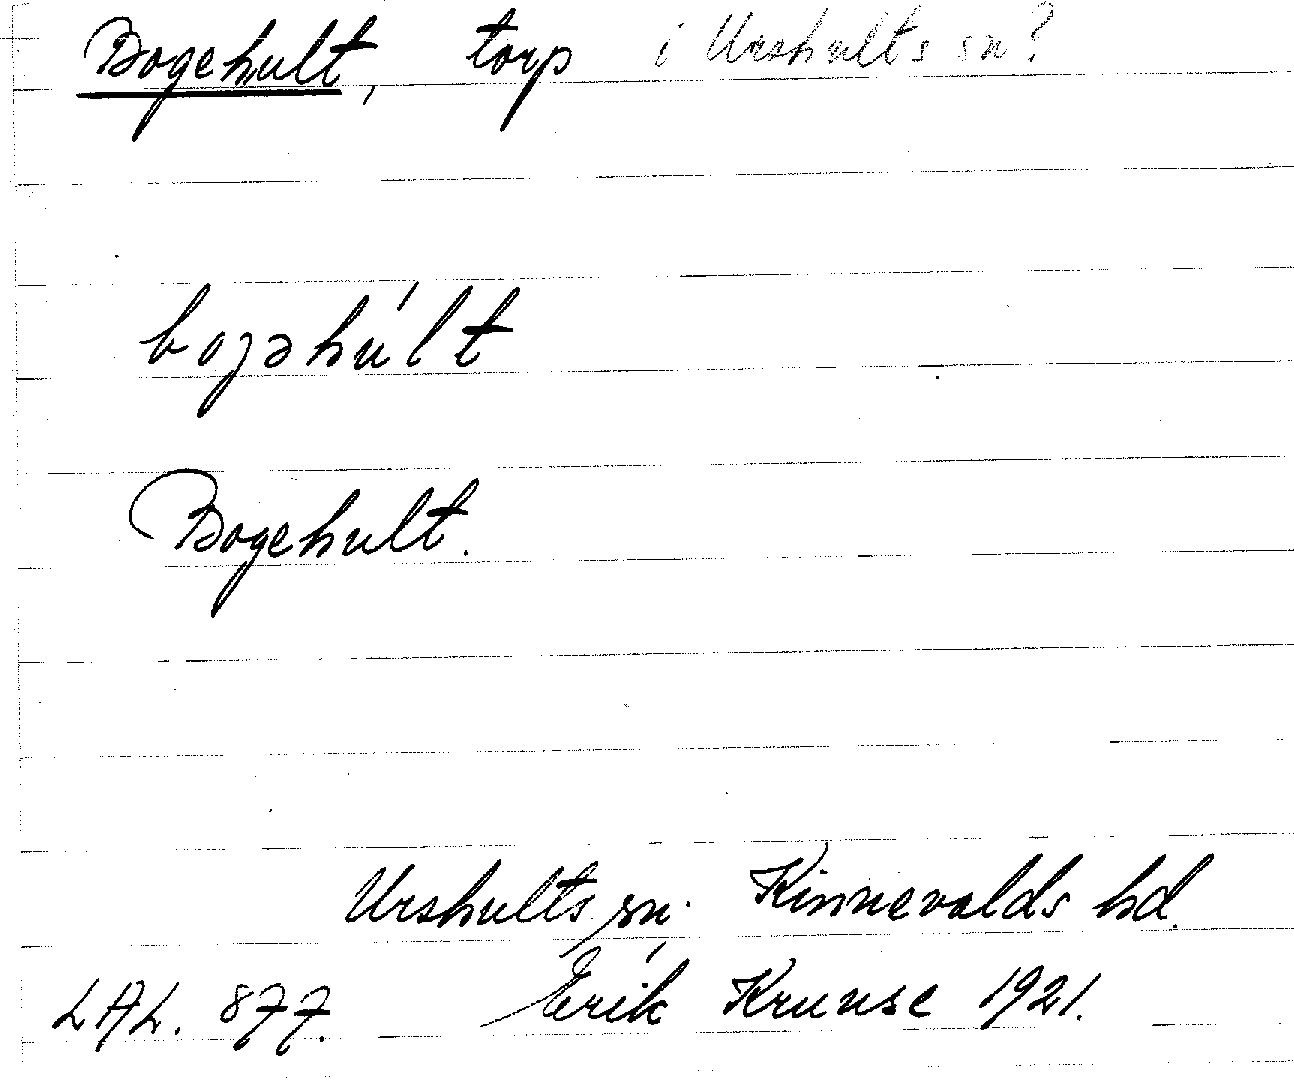 Bogehult, torp i Urshults sn?
bogəhúlt
Bogehult.
Urshults sn. Kinnevalds hd.
LAL. 877. Erik Kruuse 1921.